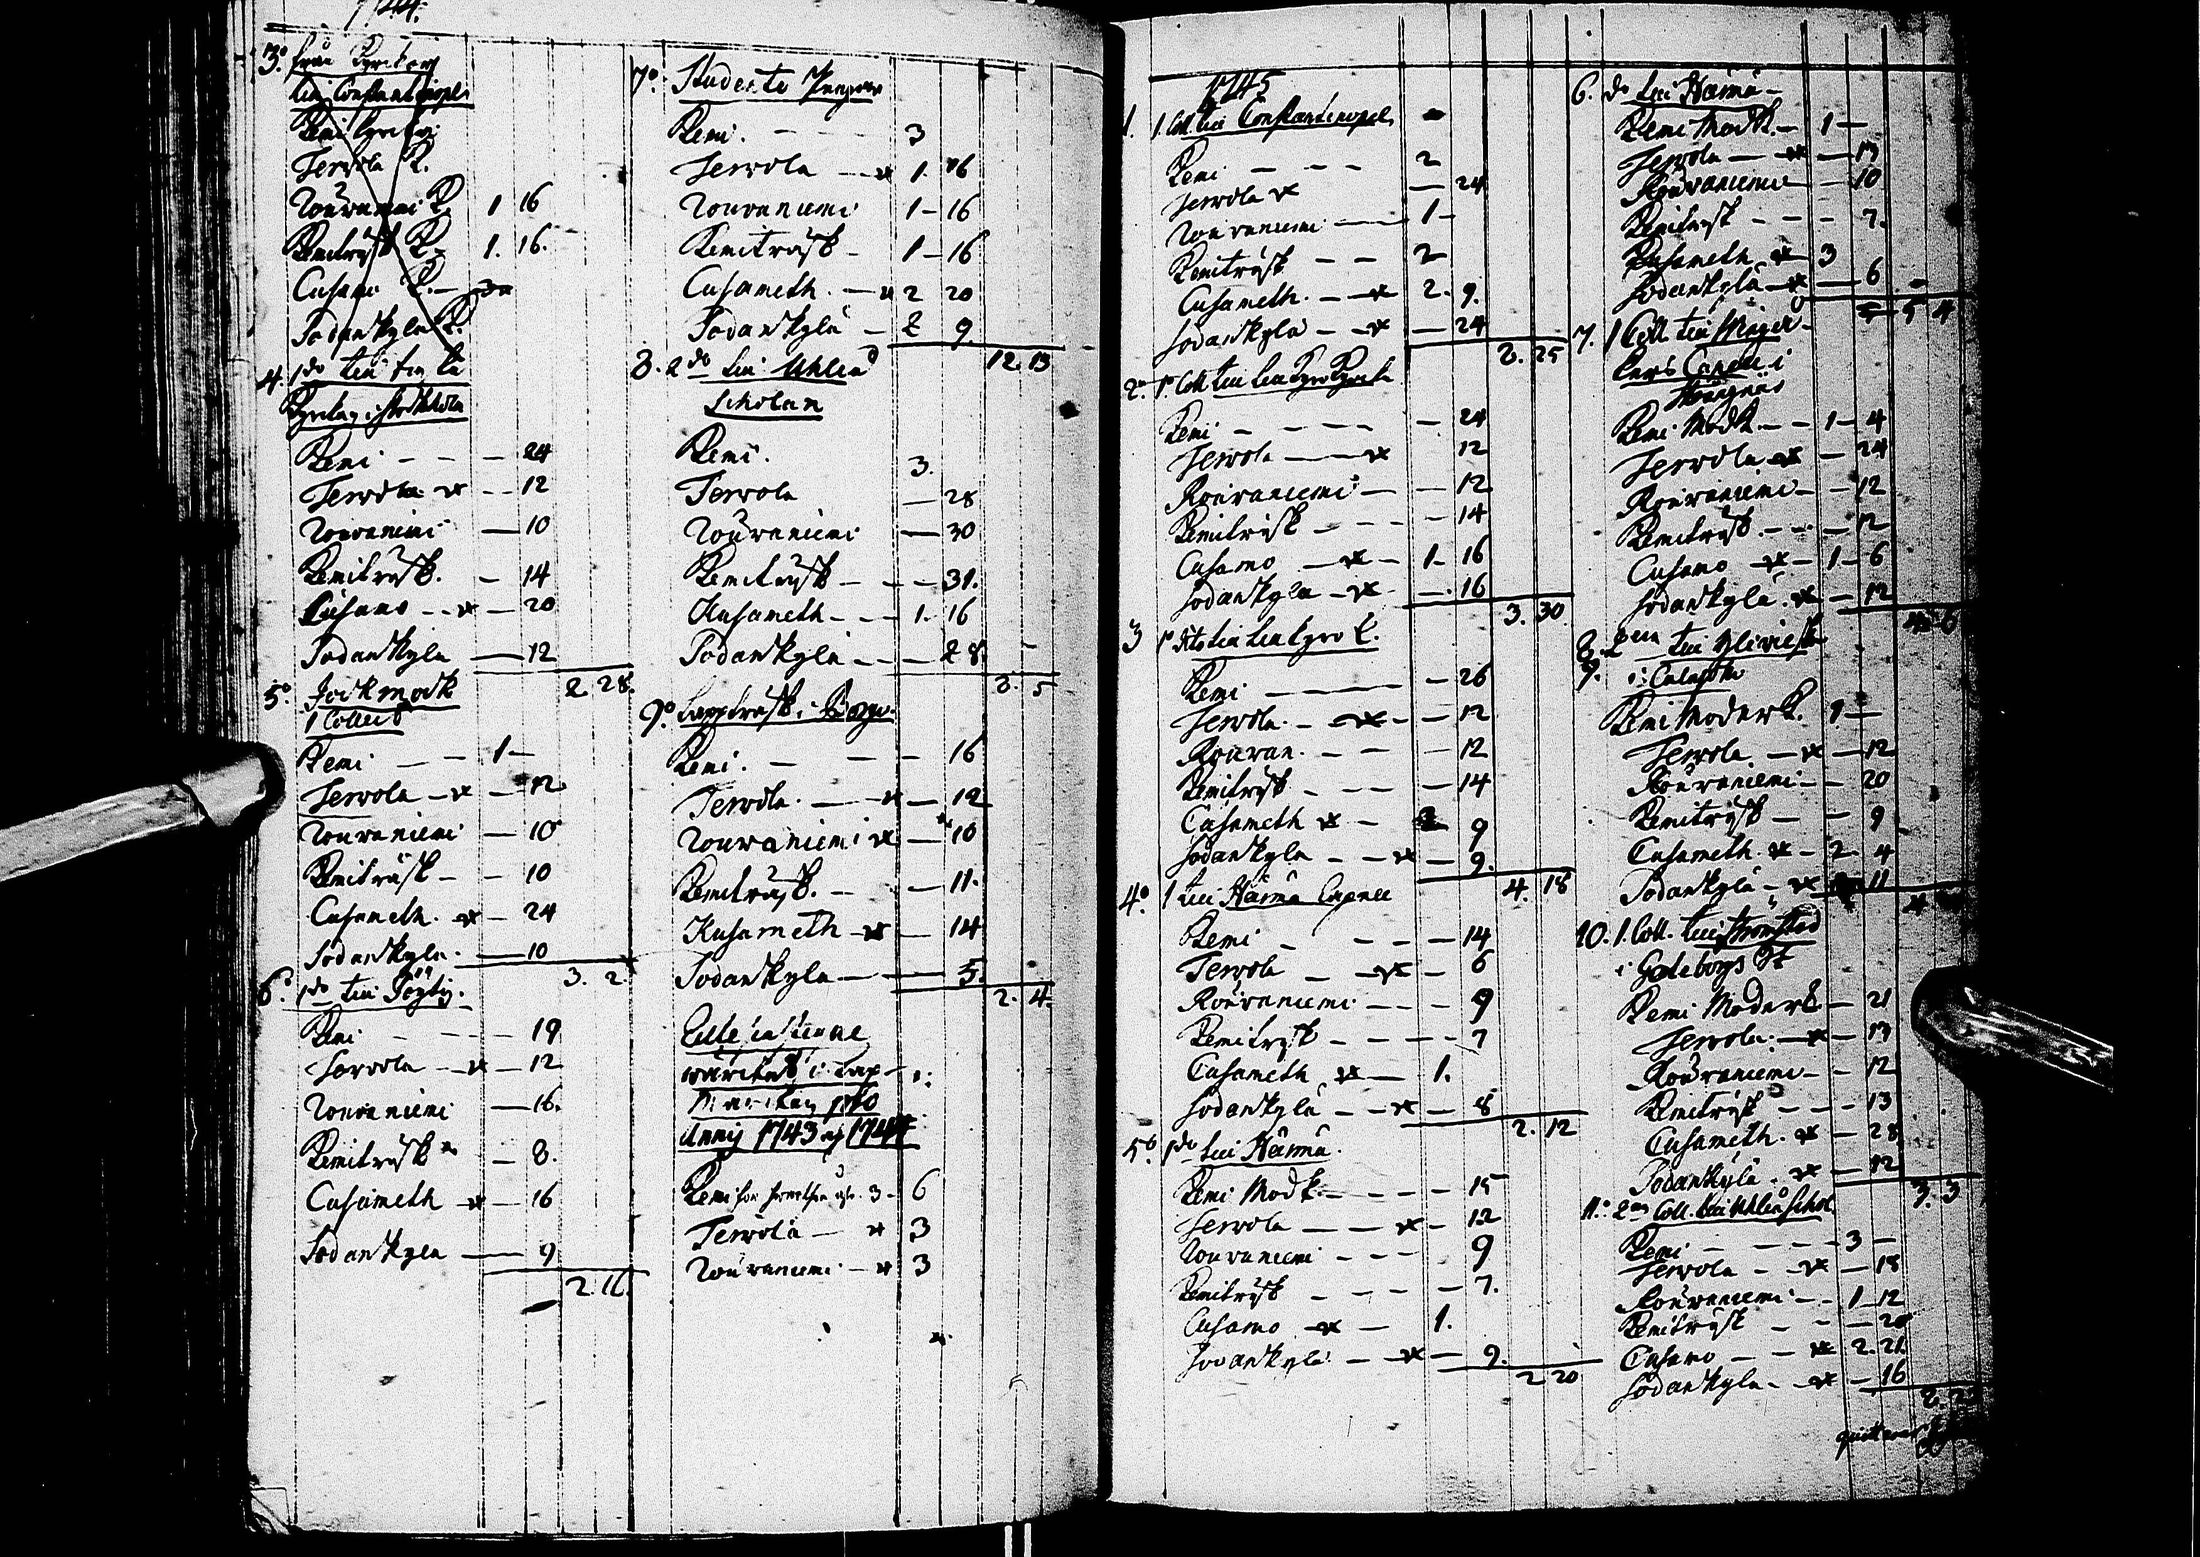 1744.
3.o från Kyrckorj
till Constantinopel
Kemi Kyrckorj
Terwola K.
Rouvaniemi K. 1 16
Kemiträsk K. 1. 16.
Cusamo K.
Sodankyla K.
4. 1 do till
Kyrckan i Stockholm
Kemi - - - 24
Terwola - - 12
Rouvaniemi — 10
Kemiträsk. - 14
Cusamo - - — 20
Sodankyla — 12
2 28.
5.o Jockmock
1 Collect
Kemi - - 1 -
Terwola - - 12
Rouvaniemi — 10
Kemiträsk - - 10
Cusameth. - 24
Sodankyla. — 10
3. 2.
6.o 1 do till
Kemi - - - - 19
Terwola - - 12
Rouvaniemi — 16.
Kemiträsk - 8.
Cusameth - 16
Sodankyla — 9
2. 16.
7.o Studente
Kemi. - - - 3
Terwola - - 1. 16
Rouvaniemi 1 - 16
Kemiträsk - 1 - 16
Cusameth. - 2 20
Sodankylä - 2 9.
12. 13
8. 2 do till Uhleå
Scholan
Kemi. 3.
Terwola — 28
Rouvaniemi — 30
Kemiträsk - - - 31.
Kusameth - - - 1. 16
Sodankylä - - - 28.
8. 5
9.o Lappträsk i Borgo.
Kemi. - - - 16
Terwola. — 12
Rouvaniemi — 10
Kemiträsk. - - 11.
Kusameth - 14
Sodankyla — 5.
2. 4.
i Lap-
Marcken pro
Annis 1743 och 1744
Kemi 3 - 6
Terwola — 3
Rouvaniemi - 3
1745
1. 1 Coll. till Constantinopel
Kemi - - - 2
Terwola — 24
Rouvaniemi — 1 -
Kemiträsk - - 2
Cusameth. - - 2. 9.
Sodankyla - - — 24
8. 25
2.o 1 Coll till
Kemi - - - - - 24
Terwola — 12
Rouvaniemi - - 12
Kemiträsk - - - - 14
Cusamo - - 1 - 16
Sodankyla - - 16
3. 30
3 1 till
Kemi - - 26
Terwola. - - - 12
Rouvan. - - - 12
Kemiträsk - - - 14
Cusameth - 9
Sodankyla - - - 9.
4. 18
4.o 1 till Härmä Capell
Kemi - - - - 14
Terwola - - 6
Rouvaniemi - - - 9
Kemiträsk - - - - 7
Cusameth — 1.
Sodankylä - - - 8
2. 12
5.o 1 do till Härmä.
Kemi Modk. - - - 15
Terwola — - 12
Rouvaniemi - - - 9
Kemiträsk - - - - 7.
Cusamo - 1.
Sodankyla - - 9.
2 20
6. do till Härmä -
Kemi Modk. - 1 -
Terwola — 13
Rouvaniemi - 10
Kemiträsk - - - 7.
Kusameth - 3
Sodankylä - — 6
5 4
7. 1 Coll till
Lars Capell i
Kemi Modk - - 1 - 4
Terwola - 24
Rouvaniemi - - 12
Kemiträsk. - - - 12
Cusamo - 1 - 6
Sodankylä. - 12
8. 2 till Ylivieska
9. i Calajoki
Kemi Moderk. 1 -
Terwola. - - 12
Rouvaniemi - - 20
Kemiträsk - - 9
Cusameth. - 2 - 4
Sodankylä - 11
10. 1. Coll. till Strömstad
i Göteborgs St
Kemi Moderk - 21
Terwola. - - 13
Rouvaniemi - - 12
Kemiträsk - - - 13
Cusameth. - 28
Sodankylä. - 12
3. 3
11.o 2 Coll. till Uhleå Schol.
Kemi - - - - 3 -
Terwola - - - 18
Rouvaniemi - - 1 12
Kemiträsk - - - 20
Cusamo - - 2. 21.
Sodankyla - - 16